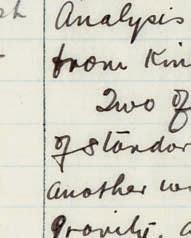 Analysis
from Kin
Two of
of standar
another
Gravity,